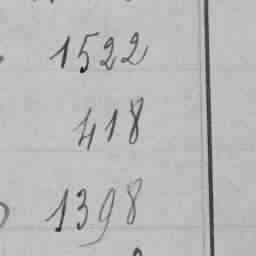 1522
418
1398